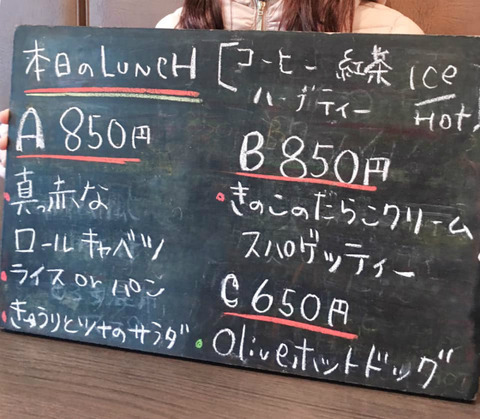 本日のLUNCH
[コーヒー 紅茶 ICe
ハーブティー HoT]
A 850円
真っ赤な
ロールキャベツ
ライス or パン
きゅうりとツナのサラダ
B 850円
きのこのたらこクリーム
スパゲッティー
C 650円
Oliveホットドッグ